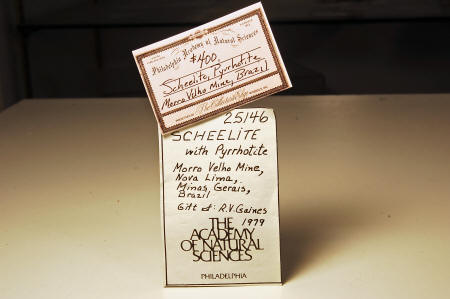 Philadelphia Academy of Natural Sciences
$400.
Scheelite, Pyrrhotite
Morro Velho Mine, Brazil
The Collector's Edge
25146
SCHEELITE
with Pyrrhotite
Morro Velho Mine,
Nova Lima,
Minas, Gerais,
Brazil
Gift of: R.V. Gaines
1979
THE
ACADEMY
OF NATURAL
SCIENCES
PHILADELPHIA